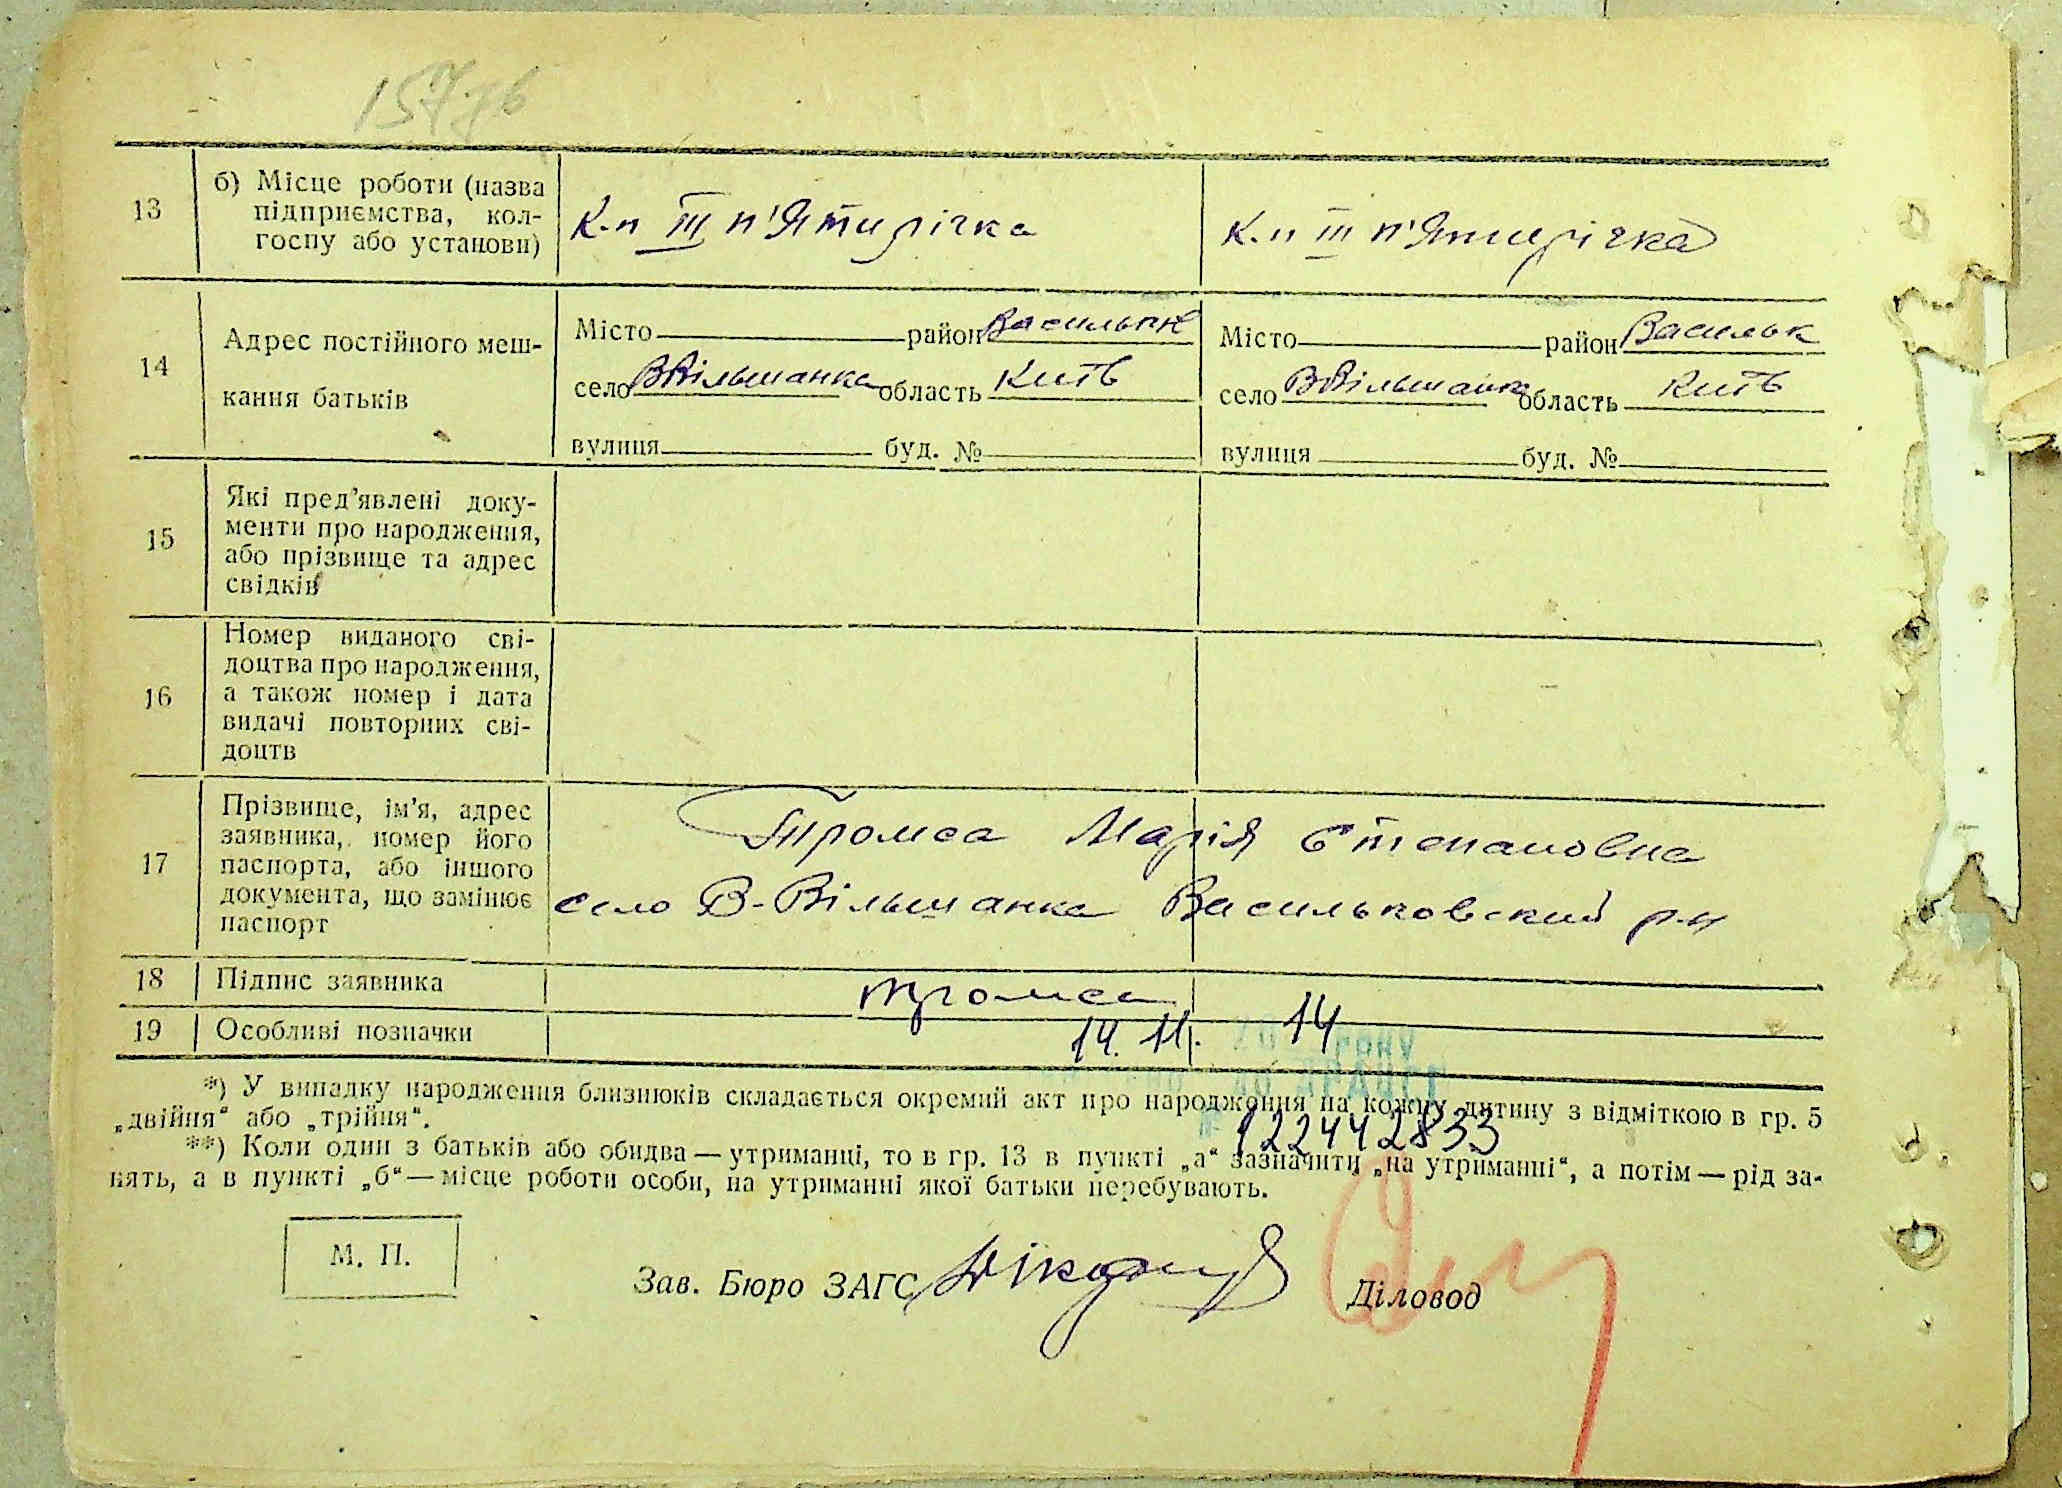 157 зв
13
б) Місце роботи (назва
підприємства, кол-
госпу або установи)
К-п ІІІ п'Ятирічка
К.п ІІІ п'Ятирічка
14
Адрес постійного меш-
кання батьків
Місто район Васильк
село ВВільшанка область Київ
вулиця буд. №
Місто район Васильк
село ВВільшанка область Київ
вулиця буд. №
15
Які пред'явлені доку-
менти про народження,
або прізвище та адрес
свідків
16
Номер виданого сві-
доцтва про народження,
а також номер і дата
видачі повторних сві-
доцтв
17
Прізвище, ім'я, адрес
заявника, номер його
паспорта, або іншого
документа, що замінює
паспорт
Тромса Марія Степановна
село В-Вільшанка Васильковский р-н
18 Підпис заявника
Тромса
19 Особливі позначки
14. 11. 14
року
№ 122442833
*) У випадку народження близнюків складається окремий акт про народження на кожну дитину з відміткою в гр. 5
„двійня“ або „трійня“.
**) Коли один з батьків або обидва — утриманці, то в гр. 13 в пункті „а“ зазначити „на утриманні“, а потім — рід за-
нять, а в пункті „б“ — місце роботи особи, на утриманні якої батьки перебувають.
М. П.
Зав. Бюро ЗАГС
Діловод